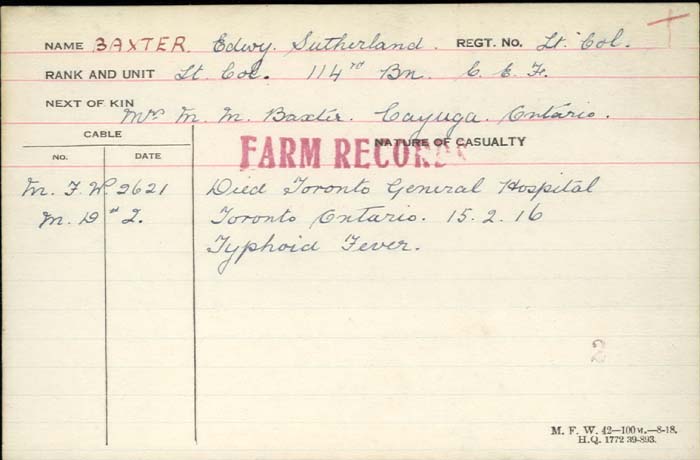 NAME BAXTER. Edwy. Sutherland. REGT. NO. Lt. Col.
RANK AND UNIT Lt. Col. 114th Bn. C. E. F.
NEXT OF KIN Mrs M. M. Baxter. Cayuga. Ontario.
CABLE
NATURE OF CASUALTY
FARM RECORDS
NO. DATE
M. F. W. 2621 Died Toronto General Hospital
M. D. 2. Toronto Ontario. 15. 2. 16
Typhoid Fever.
2
M. F. W. 42—100M.—8-18.
H.Q. 1772 39-893.